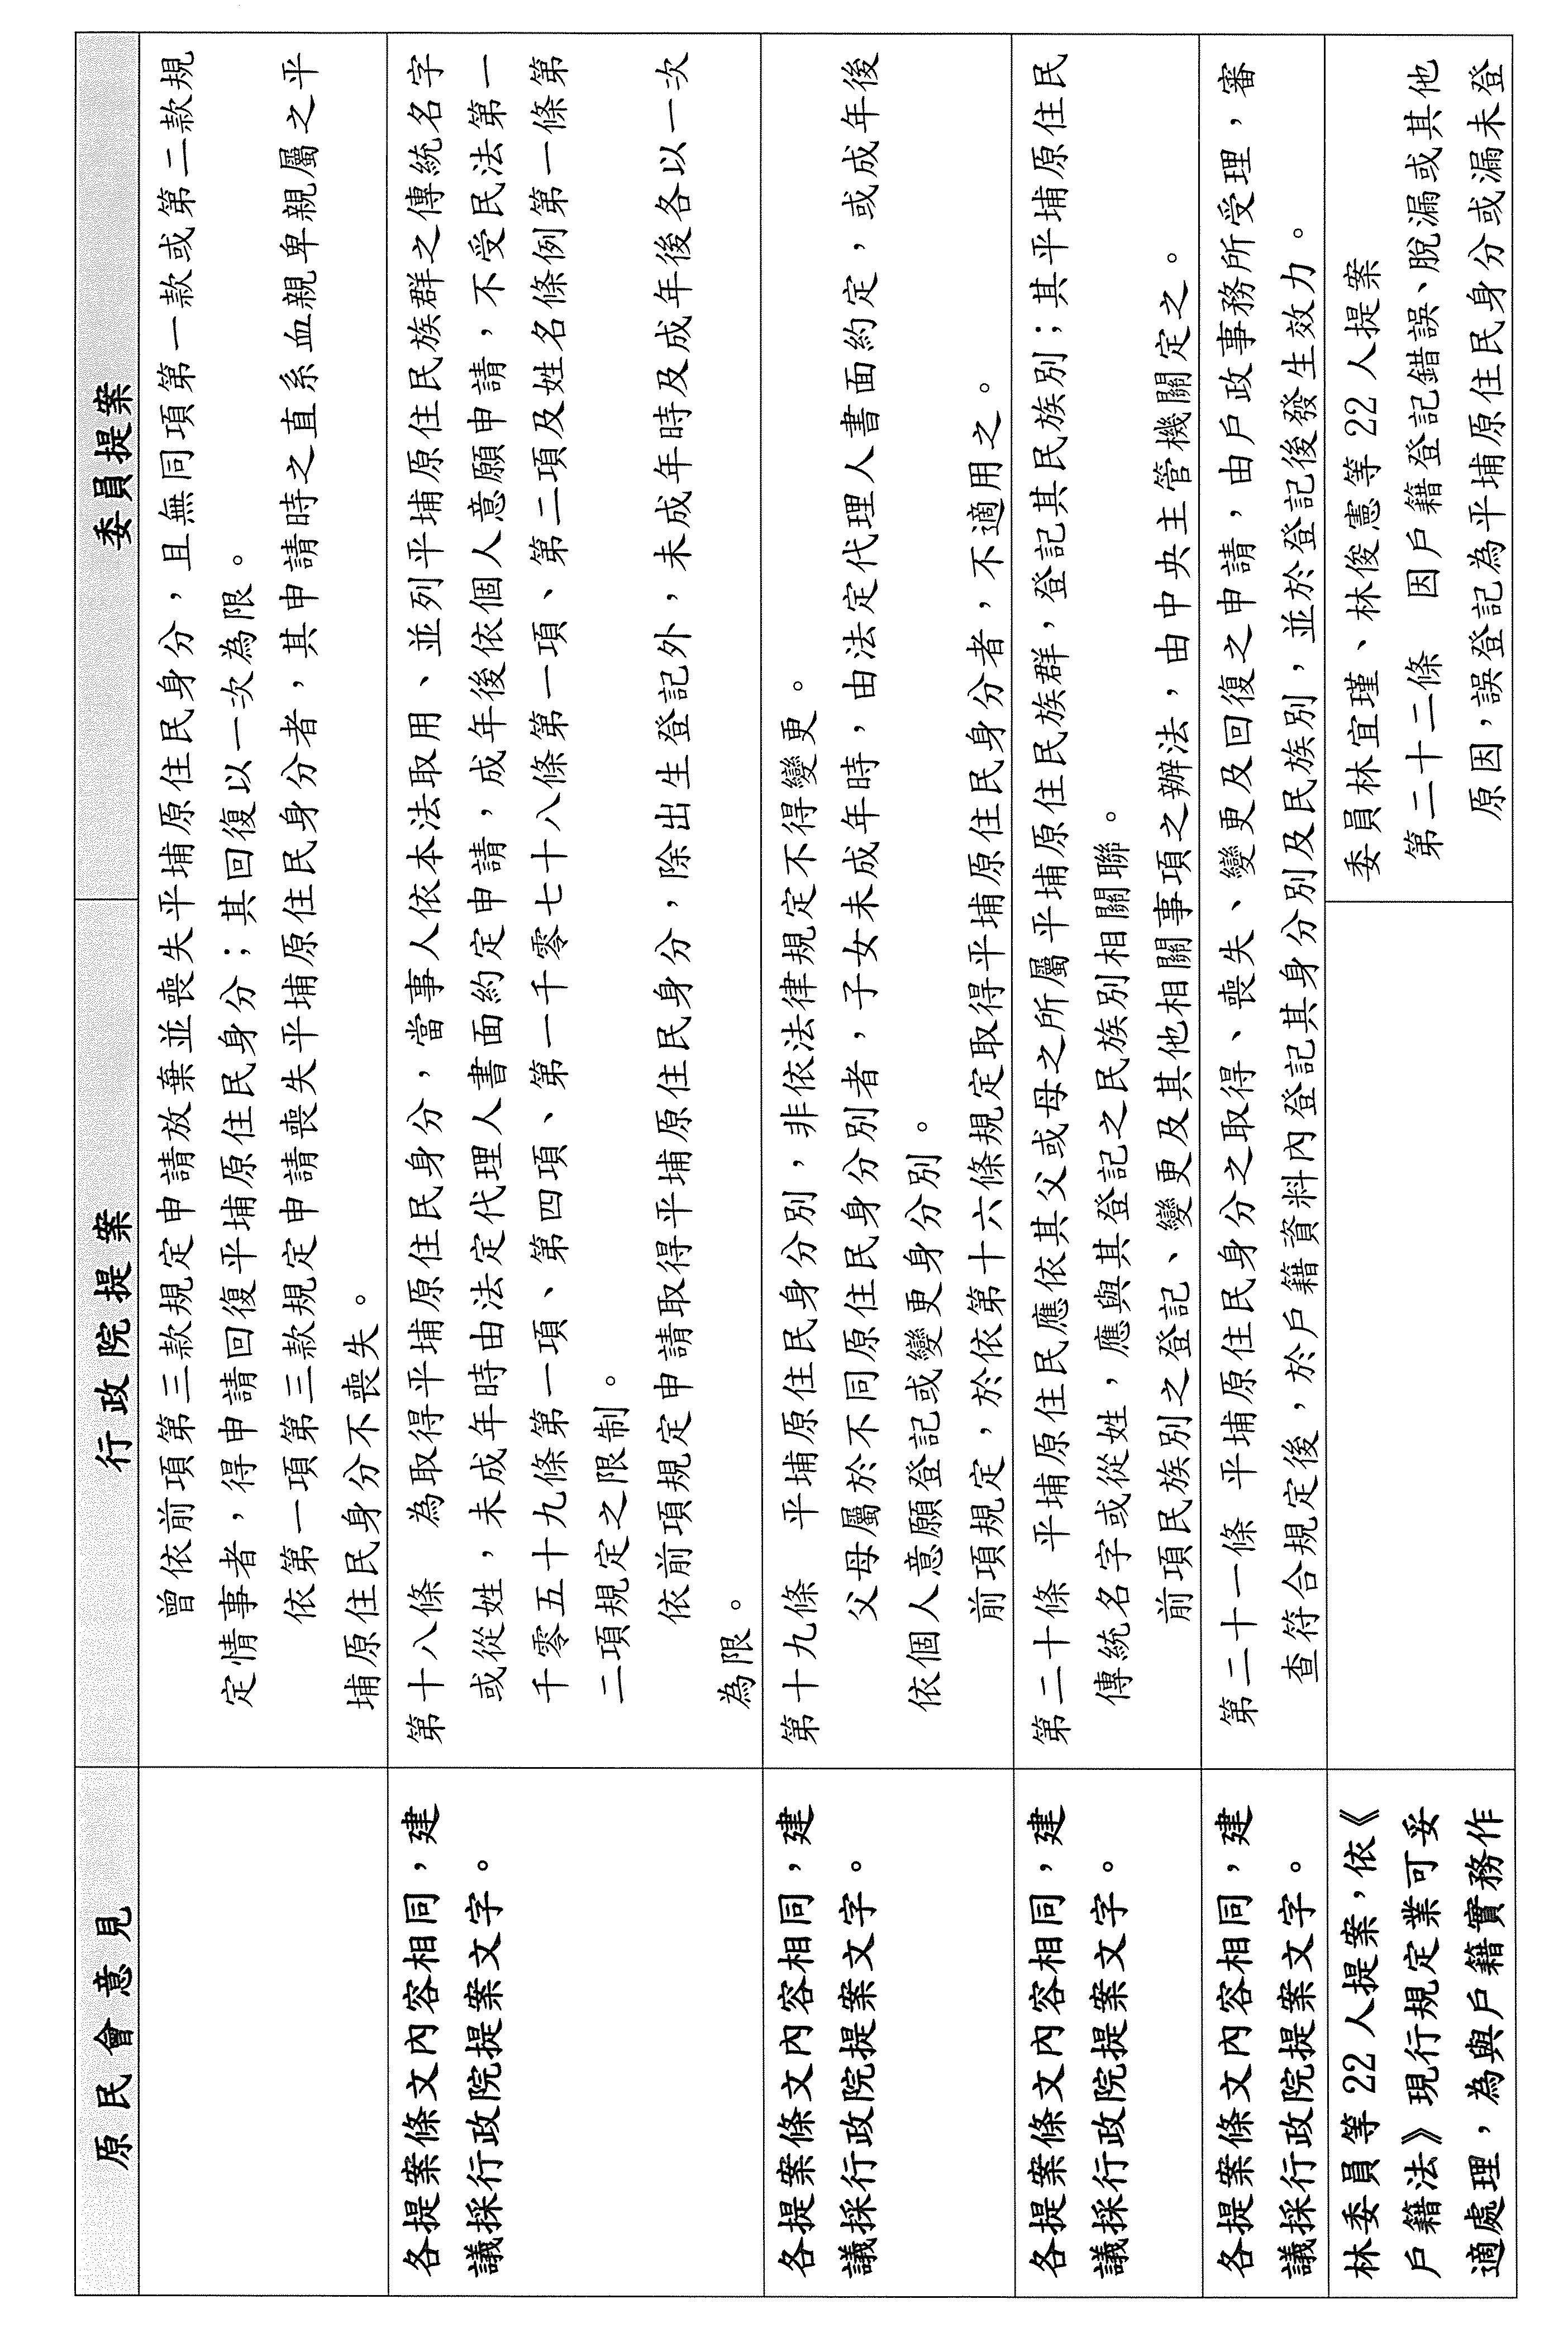 原民會意見
行政院提案
委員提案
曾依前項第三款規定申請放棄並喪失平埔原住民身分，且無同項第一款或第二款規
定情事者，得申請回復平埔原住民身分；其回復以一次為限。
依第一項第三款規定申請喪失平埔原住民身分者，其申請時之直系血親卑親屬之平
埔原住民身分不喪失。
各提案條文內容相同，建
議採行政院提案文字。
第十八條　為取得平埔原住民身分，當事人依本法取用、並列平埔原住民族群之傳統名字
或從姓，未成年時由法定代理人書面約定申請，成年後依個人意願申請，不受民法第一
千零五十九條第一項、第四項、第一千零七十八條第一項、第二項及姓名條例第一條第
二項規定之限制。
依前項規定申請取得平埔原住民身分，除出生登記外，未成年時及成年後各以一次
為限。
各提案條文內容相同，建
議採行政院提案文字。
第十九條　平埔原住民身分別，非依法律規定不得變更。
父母屬於不同原住民身分別者，子女未成年時，由法定代理人書面約定，或成年後
依個人意願登記或變更身分別。
前項規定，於依第十六條規定取得平埔原住民身分者，不適用之。
各提案條文內容相同，建
議採行政院提案文字。
第二十條　平埔原住民應依其父或母之所屬平埔原住民族群，登記其民族別；其平埔原住民
傳統名字或從姓，應與其登記之民族別相關聯。
前項民族別之登記、變更及其他相關事項之辦法，由中央主管機關定之。
各提案條文內容相同，建
議採行政院提案文字。
第二十一條　平埔原住民身分之取得、喪失、變更及回復之申請，由戶政事務所受理，審
查符合規定後，於戶籍資料內登記其身分別及民族別，並於登記後發生效力。
林委員等 22 人提案，依《
戶籍法》現行規定業可妥
適處理，為與戶籍實務作
委員林宜瑾、林俊憲等 22 人提案
第二十二條　因戶籍登記錯誤、脫漏或其他
原因，誤登記為平埔原住民身分或漏未登